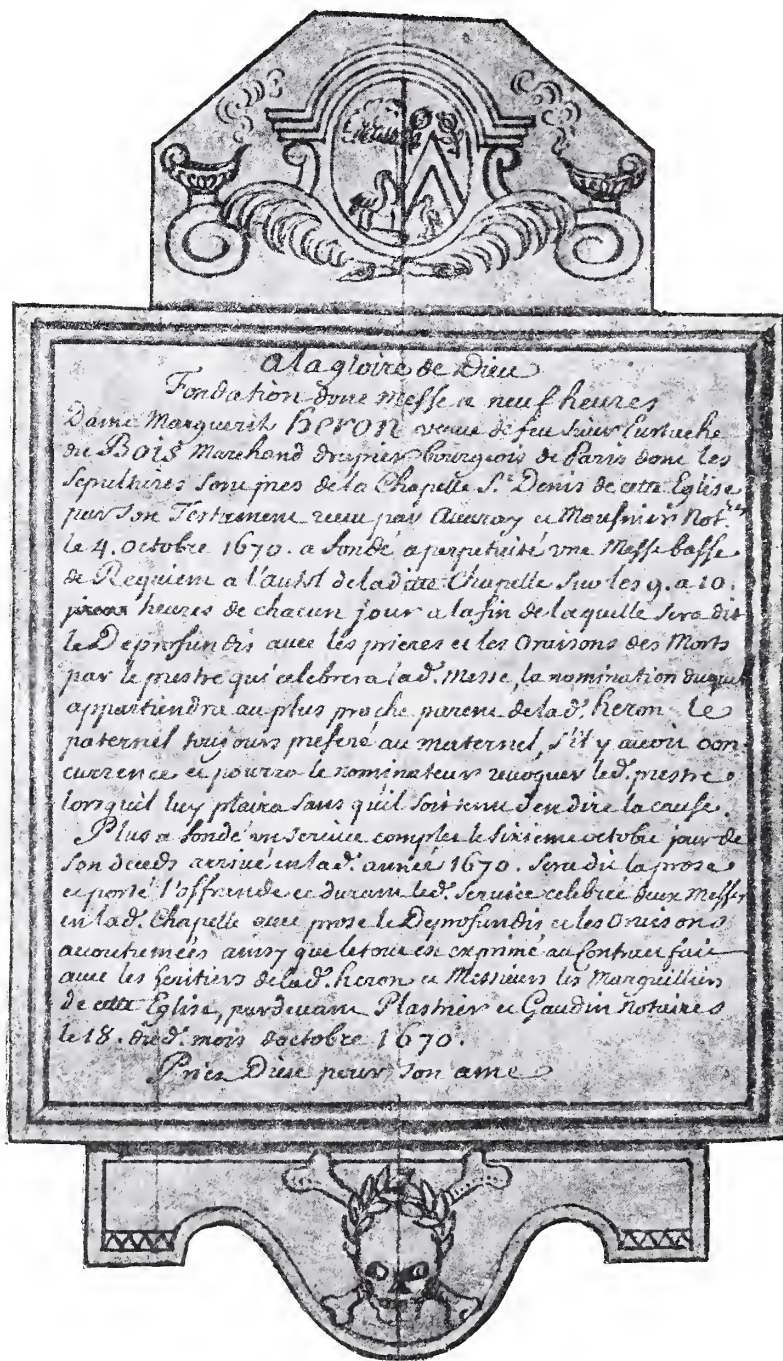 A la gloire de Dieu
Fondation dune Messe a neuf heures
Dame Marguerit heron veuue de feu Sieur Eustache
du Bois Marchand drapier bourgeois de Paris dont les
Sepultures sont pres de la Chapelle S.t Denis de cette Eglise
par Son Testament receu par et Mousnier Not.res
le 4. octobre 1670. a fondé a perpetuité vne Messe basse
de Requiem a l'autel de ladite Chapelle Sur les 9. a 10.
heures de chacun jour a la fin de laquelle Sera dit
le Deprofundis auec les prieres et les Oraisons des Morts
par le prestre qui celebrera lad. Messe, la nomination duquel
appartiendra au plus proche parent de lad. heron le
paternel toujours preferé au maternel, s'il y auoit con
currence et pourra le nominateur reuoquer led. prestre
lorsquil luy plaira Sans quil Soit tenu d'en dire la cause.
Plus a fondé vn Seruice complet le Sixieme octobre jour de
Son deceds arriué en lad. année 1670. Sera dit la prose
et porté l'offrande et durant led. Seruice celebré deux Messes
en lad. Chapelle auec prose le Deprofundis et les Oraisons
acoutumées ainsy que le tout est exprimé au Contract fait
auec les heritiers de lad. heron et Messieurs les Marguilliers
de cette Eglise, pardeuant Plastrier et Gaudin Notaires
le 18. dud. mois d'octobre 1670.
Priez Dieu pour Son ame